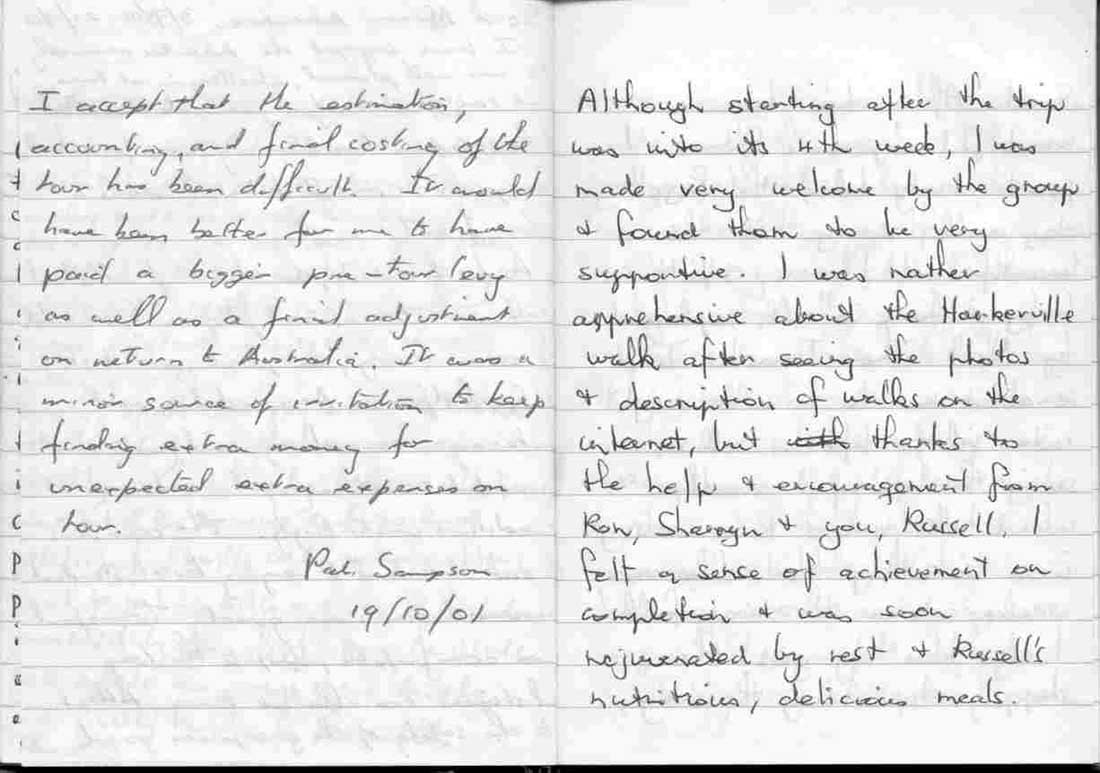 I accept that the estimation,
accounting, and final costing of the
tour has been difficult. It would
have been better for me to have
paid a bigger pre-tour levy
as well as a final adjustment
on return to Australia. It was a
minor source of irritation to keep
finding extra money for
unexpected extra expenses on
tour.
Pat. Sampson
19/10/01
Although starting after the trip
was into its 4th week, I was
made very welcome by the group
& found them to be very
supportive. I was rather
apprehensive about the Hankerville
walk after seeing the photos
& description of walks on the
internet, but with thanks to
the help & encouragement from
Ron, Sharryn & you, Russell. I
felt a sense of achievement on
completion & was soon
rejuvenated by rest & Russell's
nutritious, delicious meals.